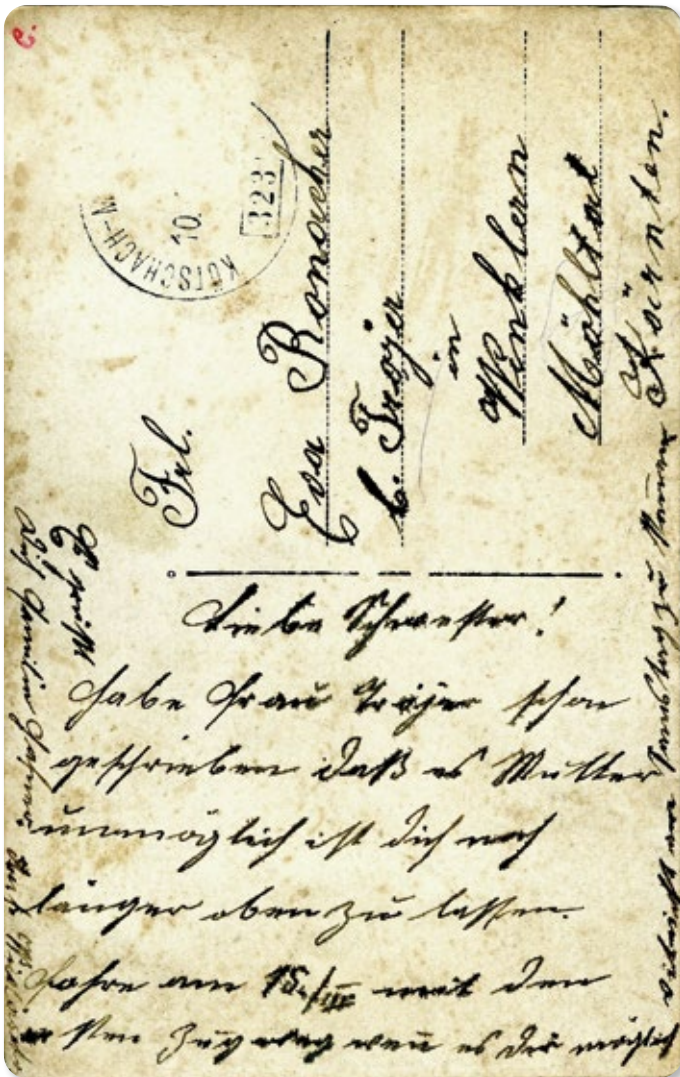 KÖTSCHACH-M
10.
323
Frl.
Eva Ronacher
b. Trojer
in
Winklern
Möhltal
Kärnten.
Liebe Schwester!
Habe Frau Trojer schon
geschrieben daß es Mutter
unmöglich ist dich noch
länger oben zu lassen.
Fahre am 15./III mit den
sten Zug weg wenn es dir möglich
vieleicht am Samstag zu kommen
Es grüßt
Dich Familie